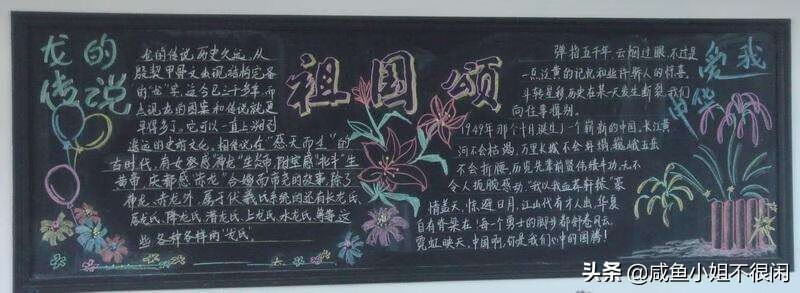 龙的
传说
龙的传说,历史久远,从
殷契甲骨文出现结构完备
的"龙"字,迄今已三千多年,而
点现龙的图案和传说就更
早得多了。它可以一直上溯到
遥远的史前文化,相传说在"感天而生"的
古时代,有女娲感"神龙"生炎帝,附宝感"北斗"生
黄帝,庆都感"赤龙"合婚而帝尧的故事,除了
神龙、赤龙外,属于伏羲氏系统的还有长龙氏、
居龙氏、降龙氏、潜龙氏、上龙氏、水龙氏、等等这
些各种各样的"龙氏"。
祖国颂
弹指五千年,云烟过眼,不过是
一点泛黄的记忆和些许醉人的惊喜,
斗转星移,历史在某一天发生断裂,我们
向往事惜别。
1949年那个十月诞生了一个崭新的中国。长江黄
河不会枯竭,万里长城不会坍塌,巍峨五岳
不会折腰,历览先辈前贤伟绩丰功,无不
令人扼腕感动。"我以我血荐轩辕"豪
情盖天,惊避日月,江山代有才人出,华夏
自有脊梁在!每一个勇士的脚步都舒卷风云,
霓虹映天。中国啊,你是我们心中的图腾!
爱我
中华
头条 @咸鱼小姐不很闲